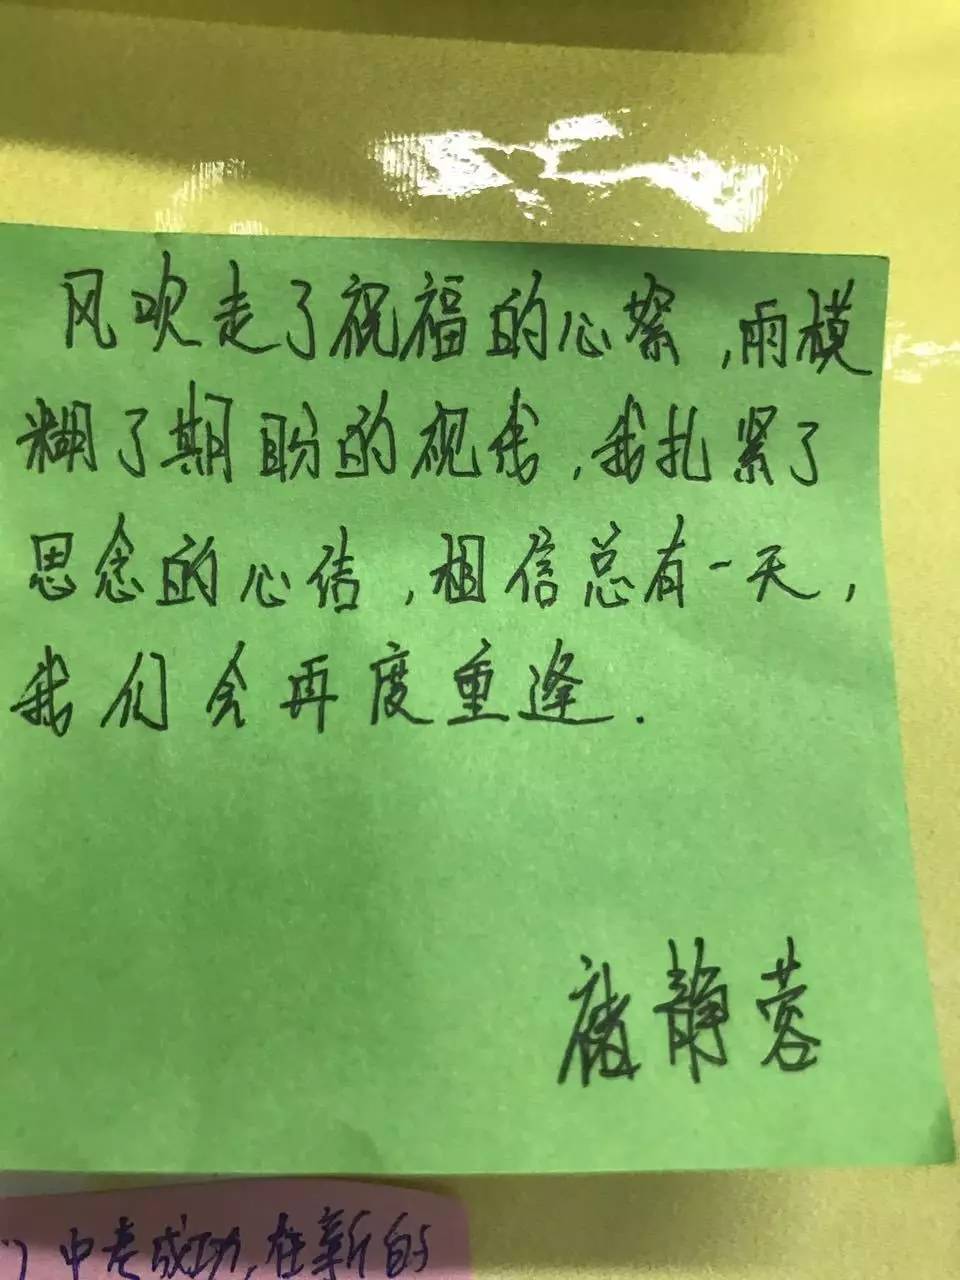 风吹走了祝福的心絮,雨模
糊了期盼的视线,我扎紧了
思念的心结,相信总有一天,
我们会再度重逢.
静蓉
中考成功,在新的